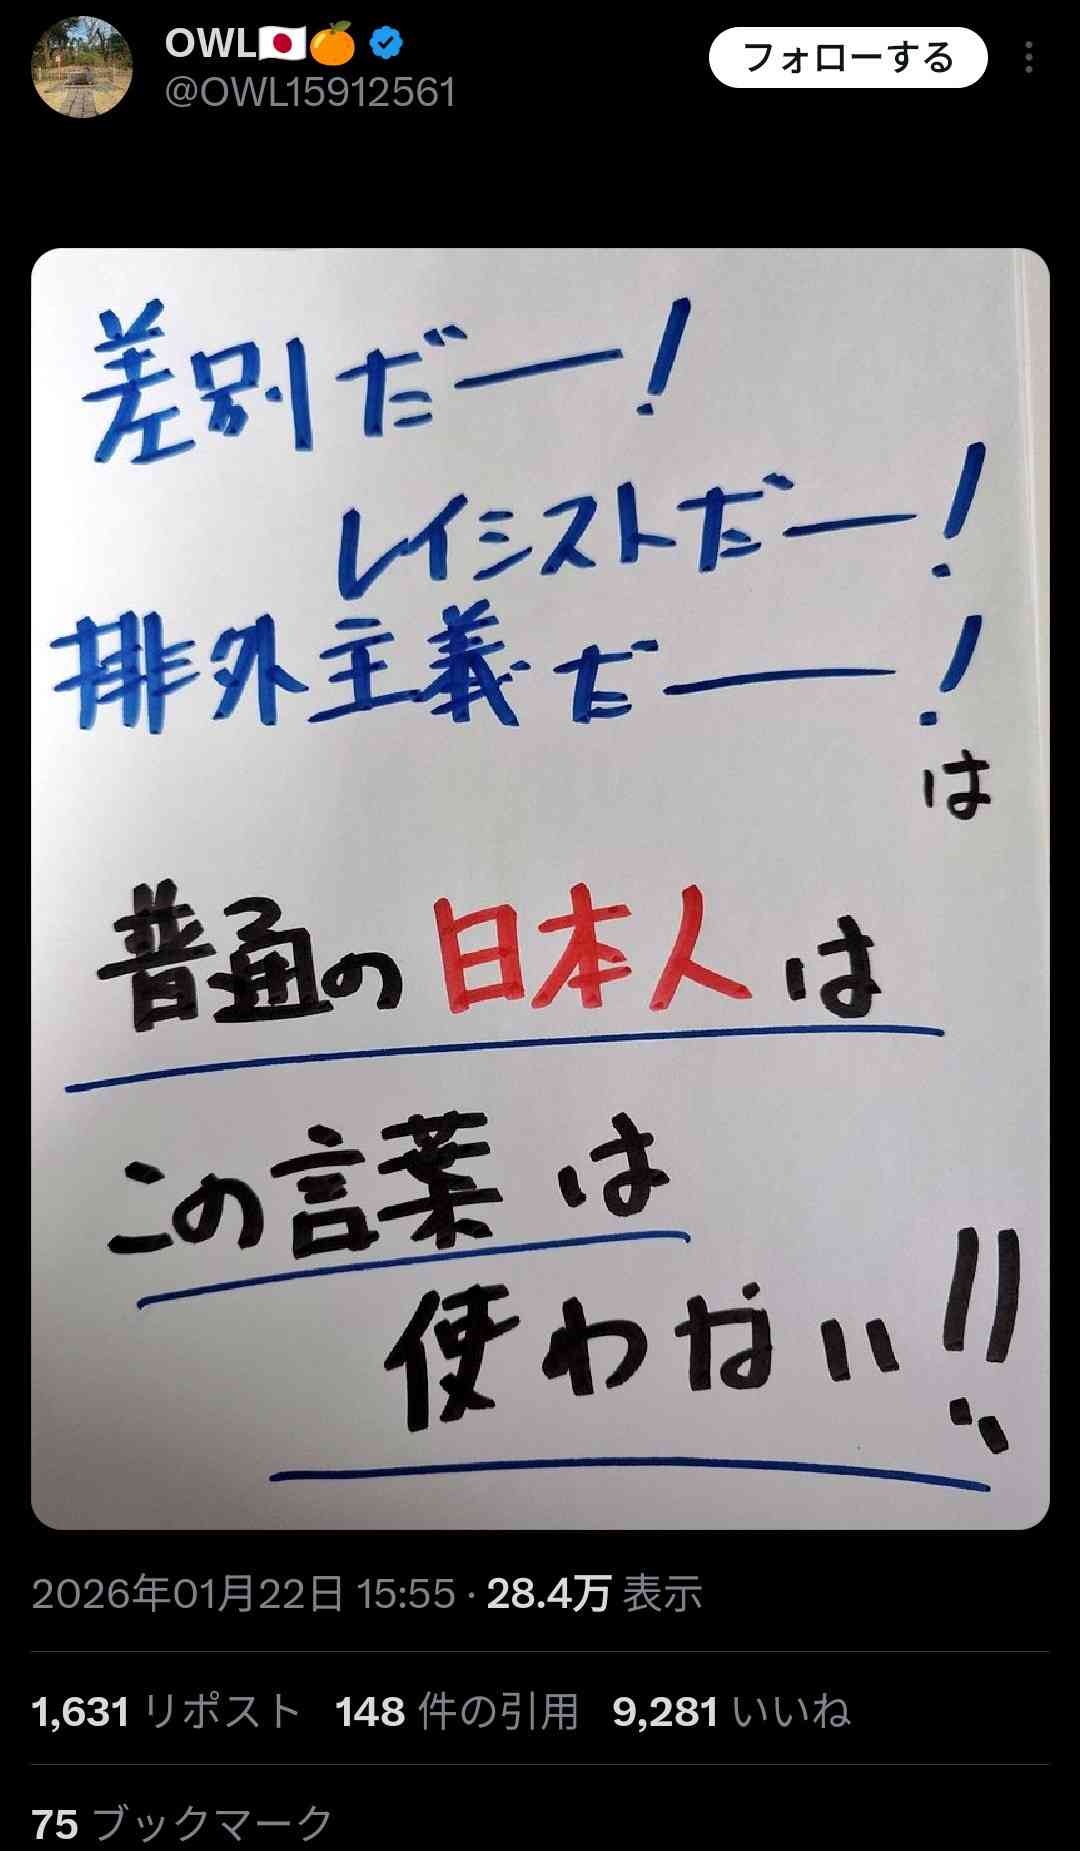 OWL🇯🇵🍊
@OWL15912561
フォローする
差別だー!
レイシストだー!
排外主義だー!
は
普通の日本人は
この言葉は
使わない!!
2026年01月22日 15:55 · 28.4万 表示
1,631 リポスト 148 件の引用 9,281 いいね
75 ブックマーク